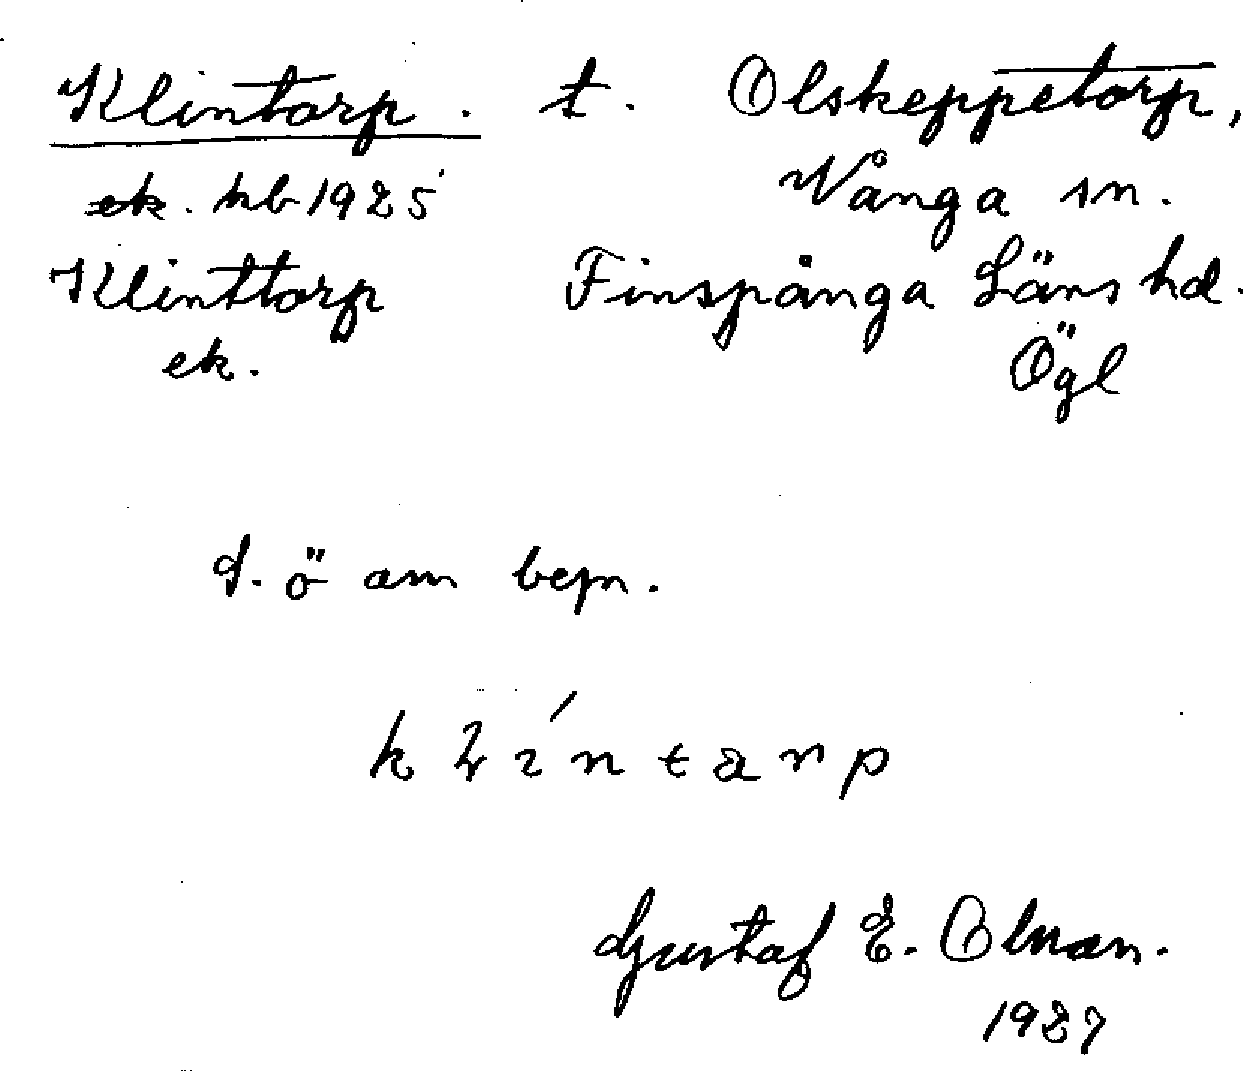 Klintorp. t. Olskeppetorp,
ek. hb 1925 Vånga sn.
Klinttorp Finspånga Läns hd.
ek. Ögl
d. ö am bep.
Gustaf E. Olman.
1927